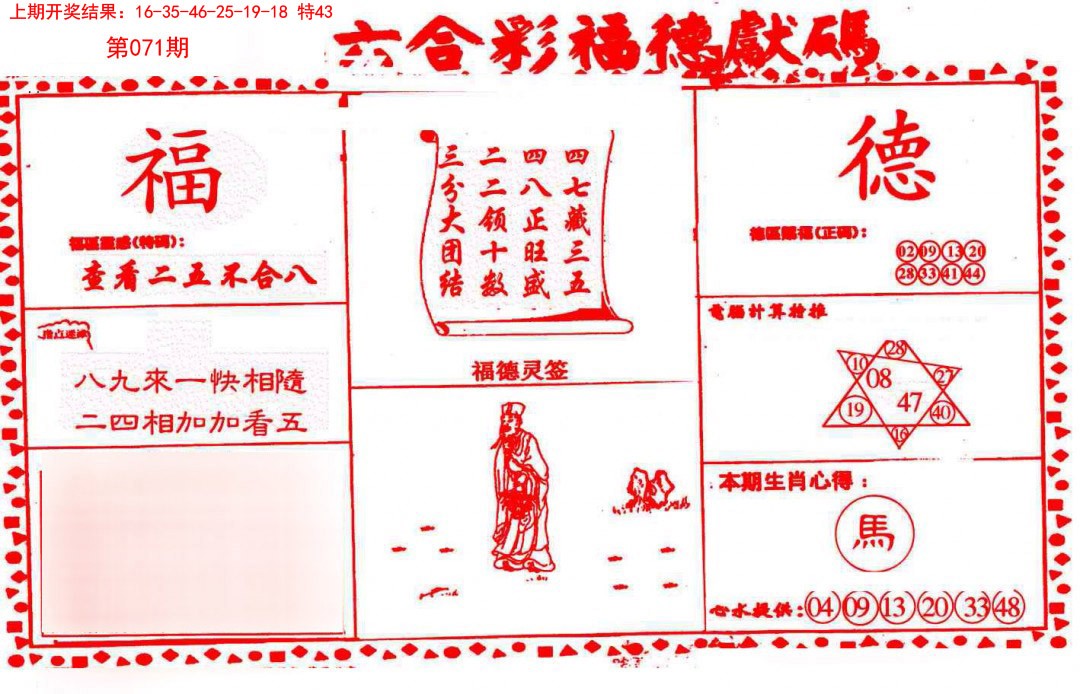 上期开奖结果：16-35-46-25-19-18 特43
第071期
六合彩福德獻碼
福
福區靈感(特碼)：
查看二五不合八
指点迷津
八九來一快相隨
二四相加加看五
四七藏三五
四八正旺盛
二二领十数
三分大团结
福德灵签
德
德區賜德(正碼)：
02 09 13 20
28 33 41 44
電腦計算檢推
28
10
27
08
47
19
40
16
本期生肖心得：
馬
心水提供：04 09 13 20 33 48